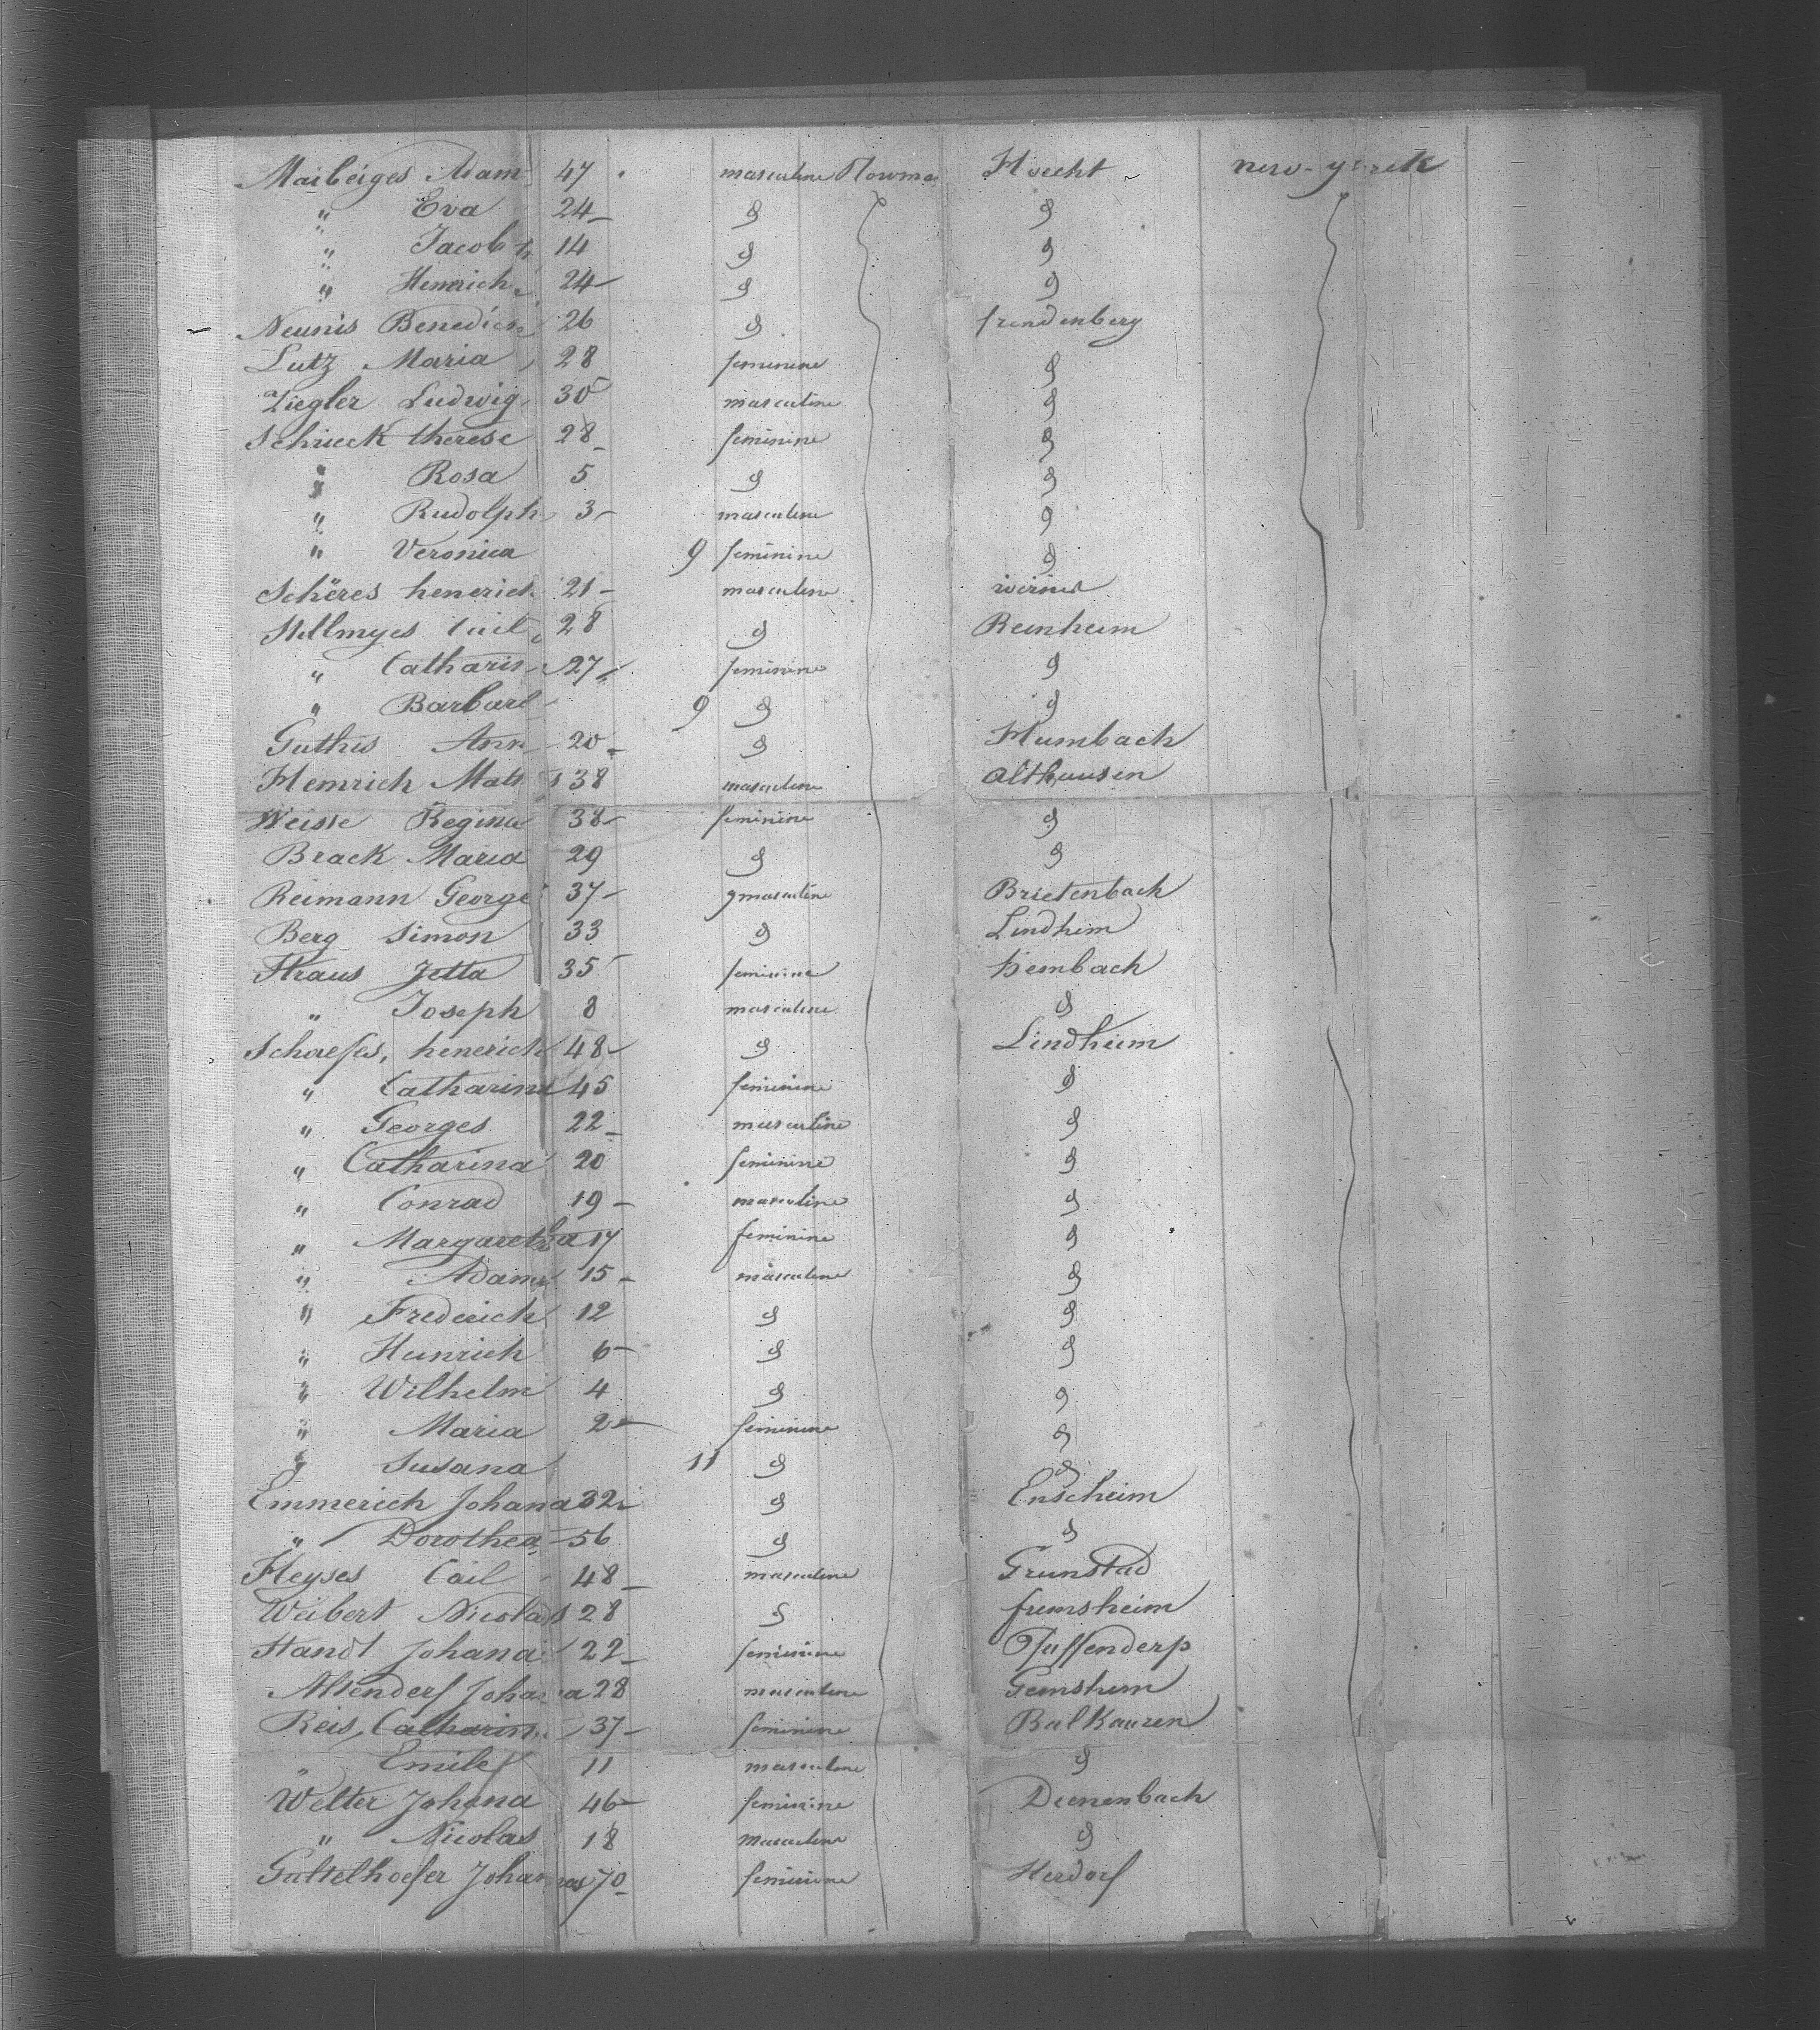 Maibeiges Adam 47 masculine Howma Hoecht new-yorck
" Eva 24 - 9 9
" Jacob 14 9 9
" Henrich 24 - 9 9
Neunis Benedict 26 9 frendenberg
Lutz Maria 28 feminine 9
Ziegler Ludwig 30 masculine 9
Schueck therese 28 - feminine 9
" Rosa 5 9 9
" Rudolph 3 - masculine 9
" Veronica 9 feminine 9
Schëres henerich 21 - masculine
Hellmyes 28 9 Reinheim
" Catharin 27 - feminine 9
" Barbare 9 9 9
Guthis Ann 20 - 9 Humbach
Hemrich Mats 38 masculine Althausen
Weisse Regina 38 - feminine 9
Brack Maria 29 9 9
Reimann George 37 - masculine Brietenbach
Berg Simon 33 9 Lindhim
Kraus Jetta 35 feminine Hembach
" Joseph 8 masculine 9
Schaefes, henerich 48 - 9 Lindheim
" Catharina 45 feminine 9
" Georges 22 - masculine 9
" Catharina 20 feminine 9
" Conrad 19 - masculine 9
" Margaretha 17 feminine 9
" Adam 15 - masculine 9
" Frederich 12 9 9
" Heinrich 6 - 9 9
" Wilhelm 4 9 9
" Maria 2 - feminine 9
" Susana 11 9 9
Emmerich Johana 32 - 9 Enscheim
" Dorothea 56 9 9
Heyses Cail 48 - masculine Grunstad
Weibert Nicolas 28 9 fremsheim
Handl Johana 22 - feminine Pfuffenderp
Altenderf Johana 28 masculine Gemshem
Reis, Catharin 37 - feminine Balkauzen
" Emile 11 masculine 9
Welter Johana 46 - feminine Dienenbach
" Nicolas 18 masculine 9
Guttelhoefer Johannas 70 - feminine Herdorf